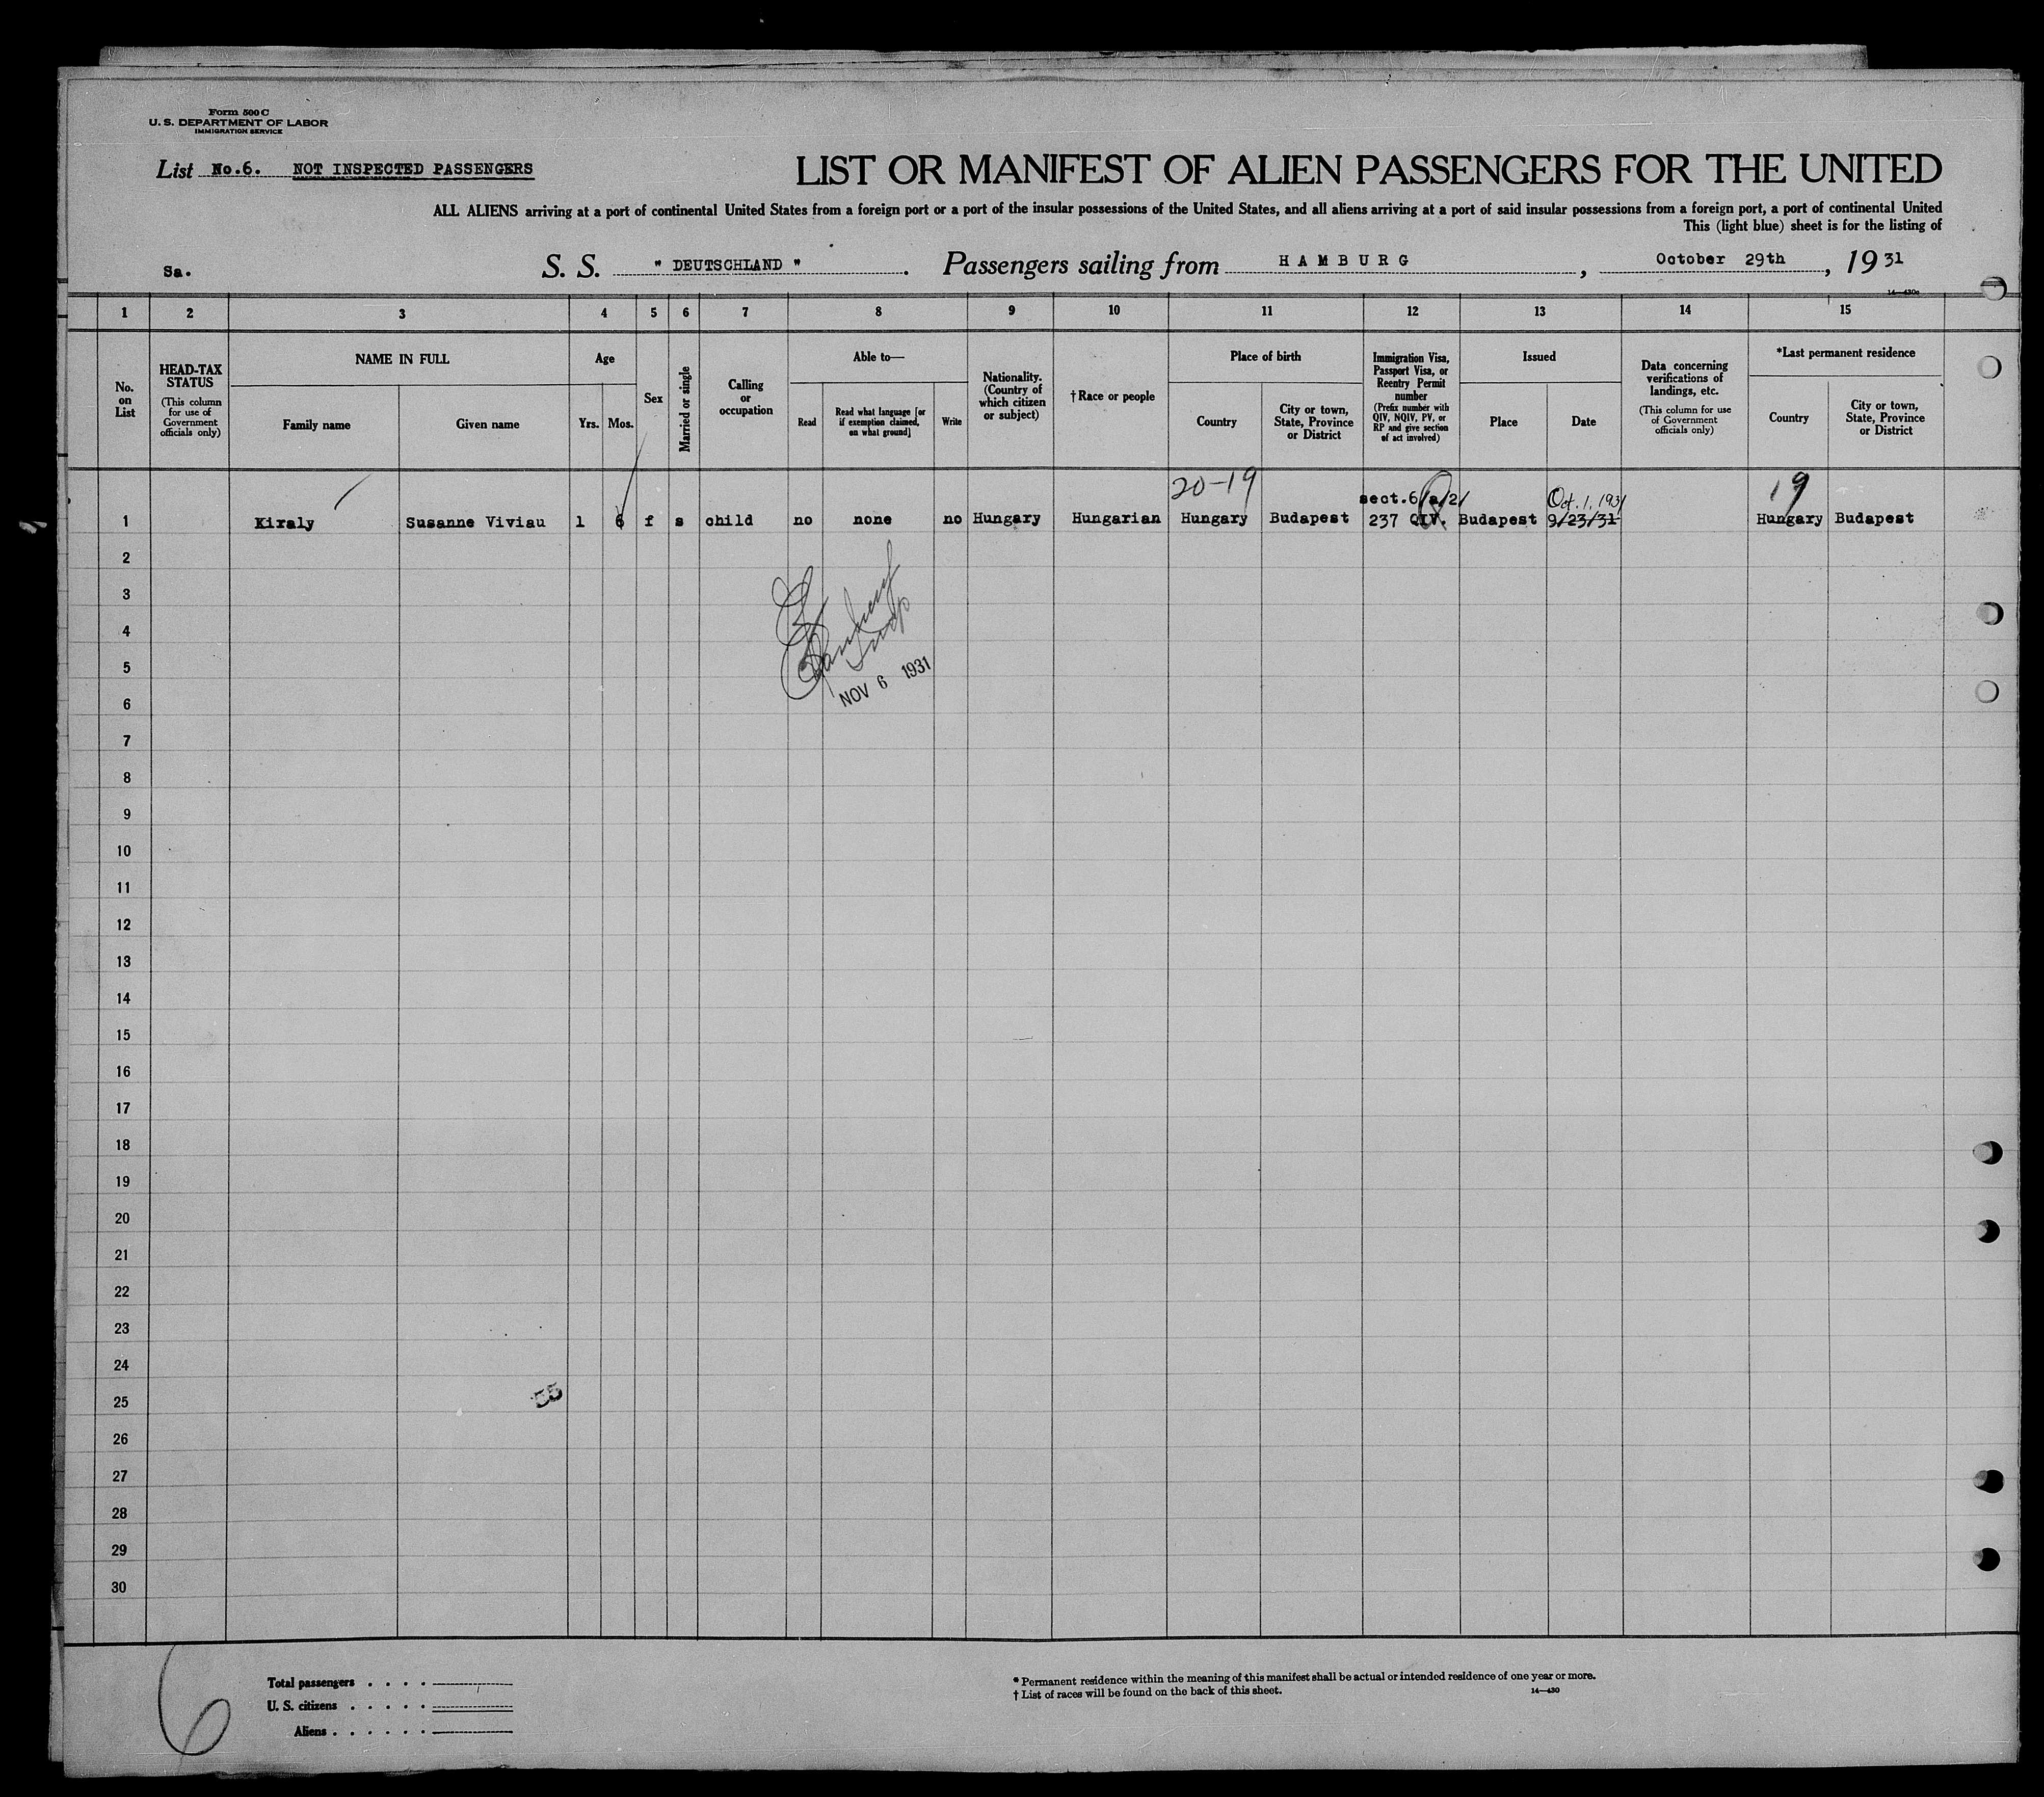 Form 500 C
U. S. DEPARTMENT OF LABOR
IMMIGRATION SERVICE
List No.6. NOT INSPECTED PASSENGERS
LIST OR MANIFEST OF ALIEN PASSENGERS FOR THE UNITED
ALL ALIENS arriving at a port of continental United States from a foreign port or a port of the insular possessions of the United States, and all aliens arriving at a port of said insular possessions from a foreign port, a port of continental United
This (light blue) sheet is for the listing of
Sa. S. S. " DEUTSCHLAND " . Passengers sailing from HAMBURG , October 29th , 19 31
14—430c
1 2 3 4 5 6 7 8 9 10 11 12 13 14 15
No. on List
HEAD-TAX STATUS
(This column for use of Government officials only)
NAME IN FULL
Family name
Given name
Age
Yrs.
Mos.
Sex
Married or single
Calling or occupation
Able to—
Read
Read what language [or if exemption claimed, on what ground]
Write
Nationality. (Country of which citizen or subject)
† Race or people
Place of birth
Country
City or town, State, Province or District
Immigration Visa, Passport Visa, or Reentry Permit number
(Prefix number with QIV, NQIV, PV, or RP and give section of act involved)
Issued
Place
Date
Data concerning verifications of landings, etc.
(This column for use of Government officials only)
*Last permanent residence
Country
City or town, State, Province or District
20-19 sect.6/a/2/ Oct. 1, 1931 19
1 Kiraly Susanne Viviau 1 6 f s child no none no Hungary Hungarian Hungary Budapest 237 QIV. Budapest 9/23/31 Hungary Budapest
2
3
4
5
NOV 6 1931
6
7
8
9
10
11
12
13
14
15
16
17
18
19
20
21
22
23
24
25
55
26
27
28
29
30
6
Total passengers . . . .
U. S. citizens . . . . .
Aliens . . . . . .
* Permanent residence within the meaning of this manifest shall be actual or intended residence of one year or more.
† List of races will be found on the back of this sheet.
14—430